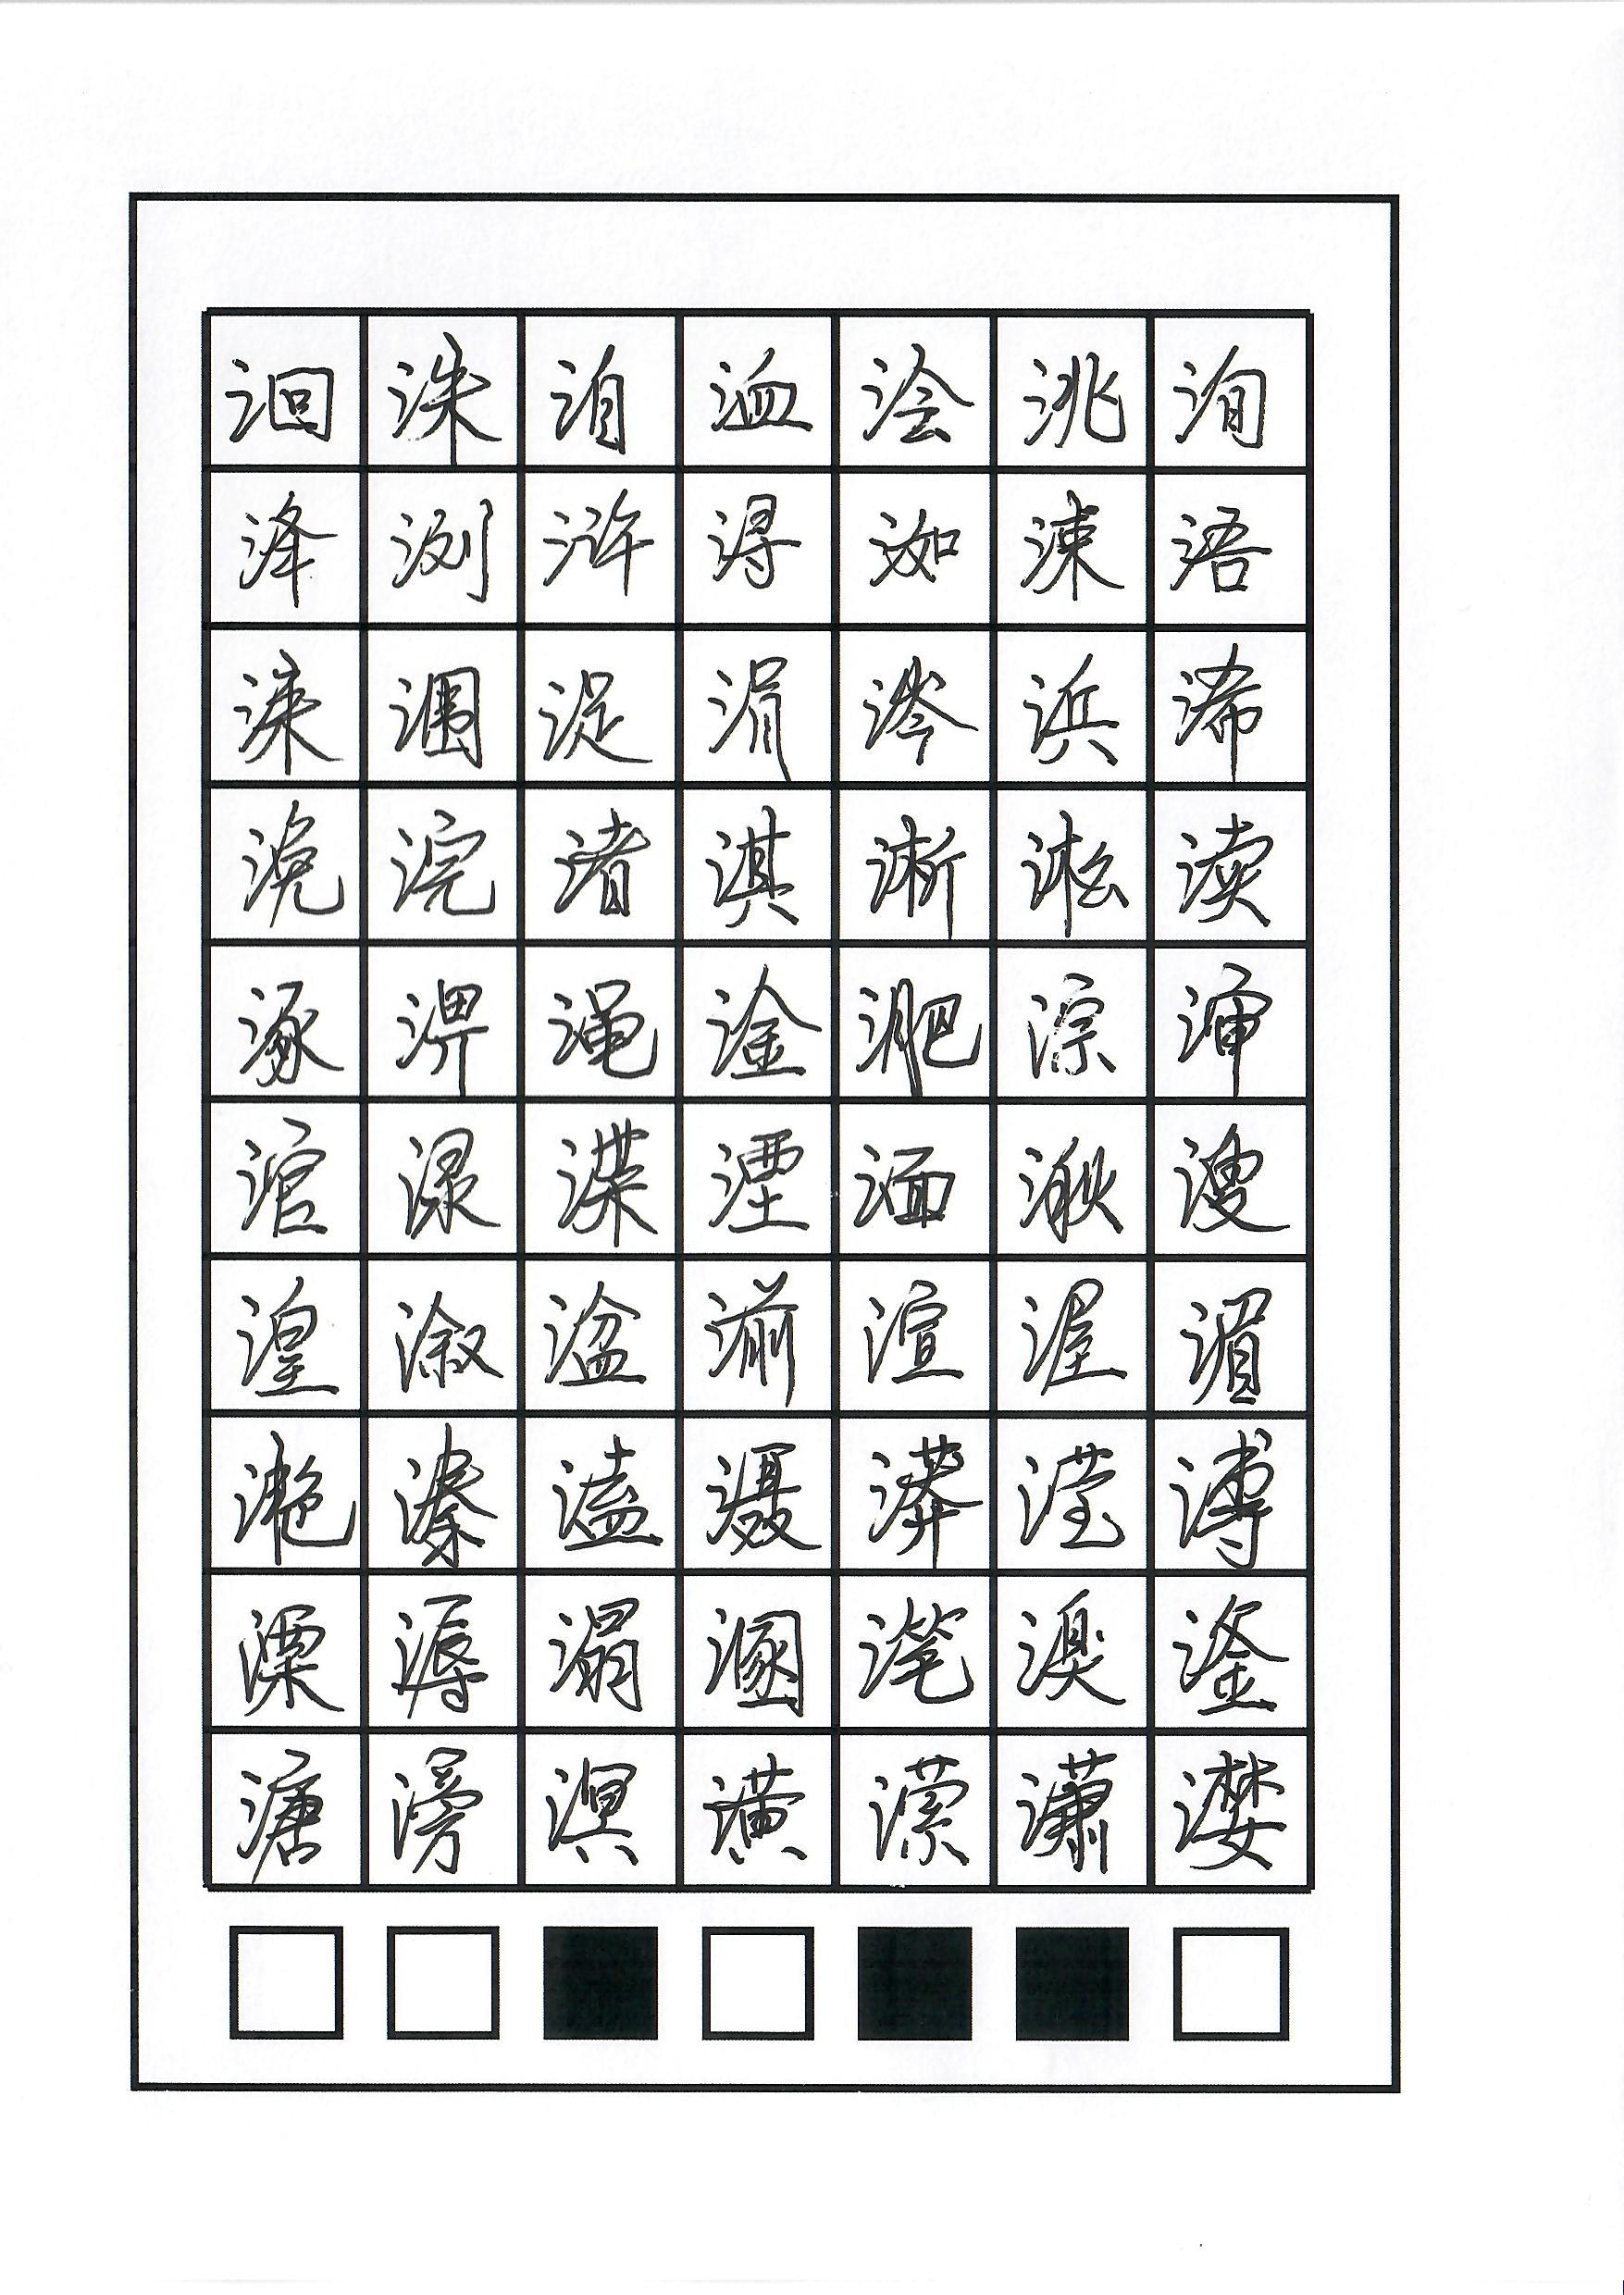 洄洙洎洫浍洮洵
洚浏浒浔洳涑浯
涞涠浞涓涔浜浠
浼浣渚淇淅淞渎
涿淠渑淦淝淙渖
涫渌渫湮湎湫溲
湟溆湓湔渲渥湄
滟溱溘滠漭滢溥
溧溽溻溷滗溴滏
溏滂溟潢潆潇漤